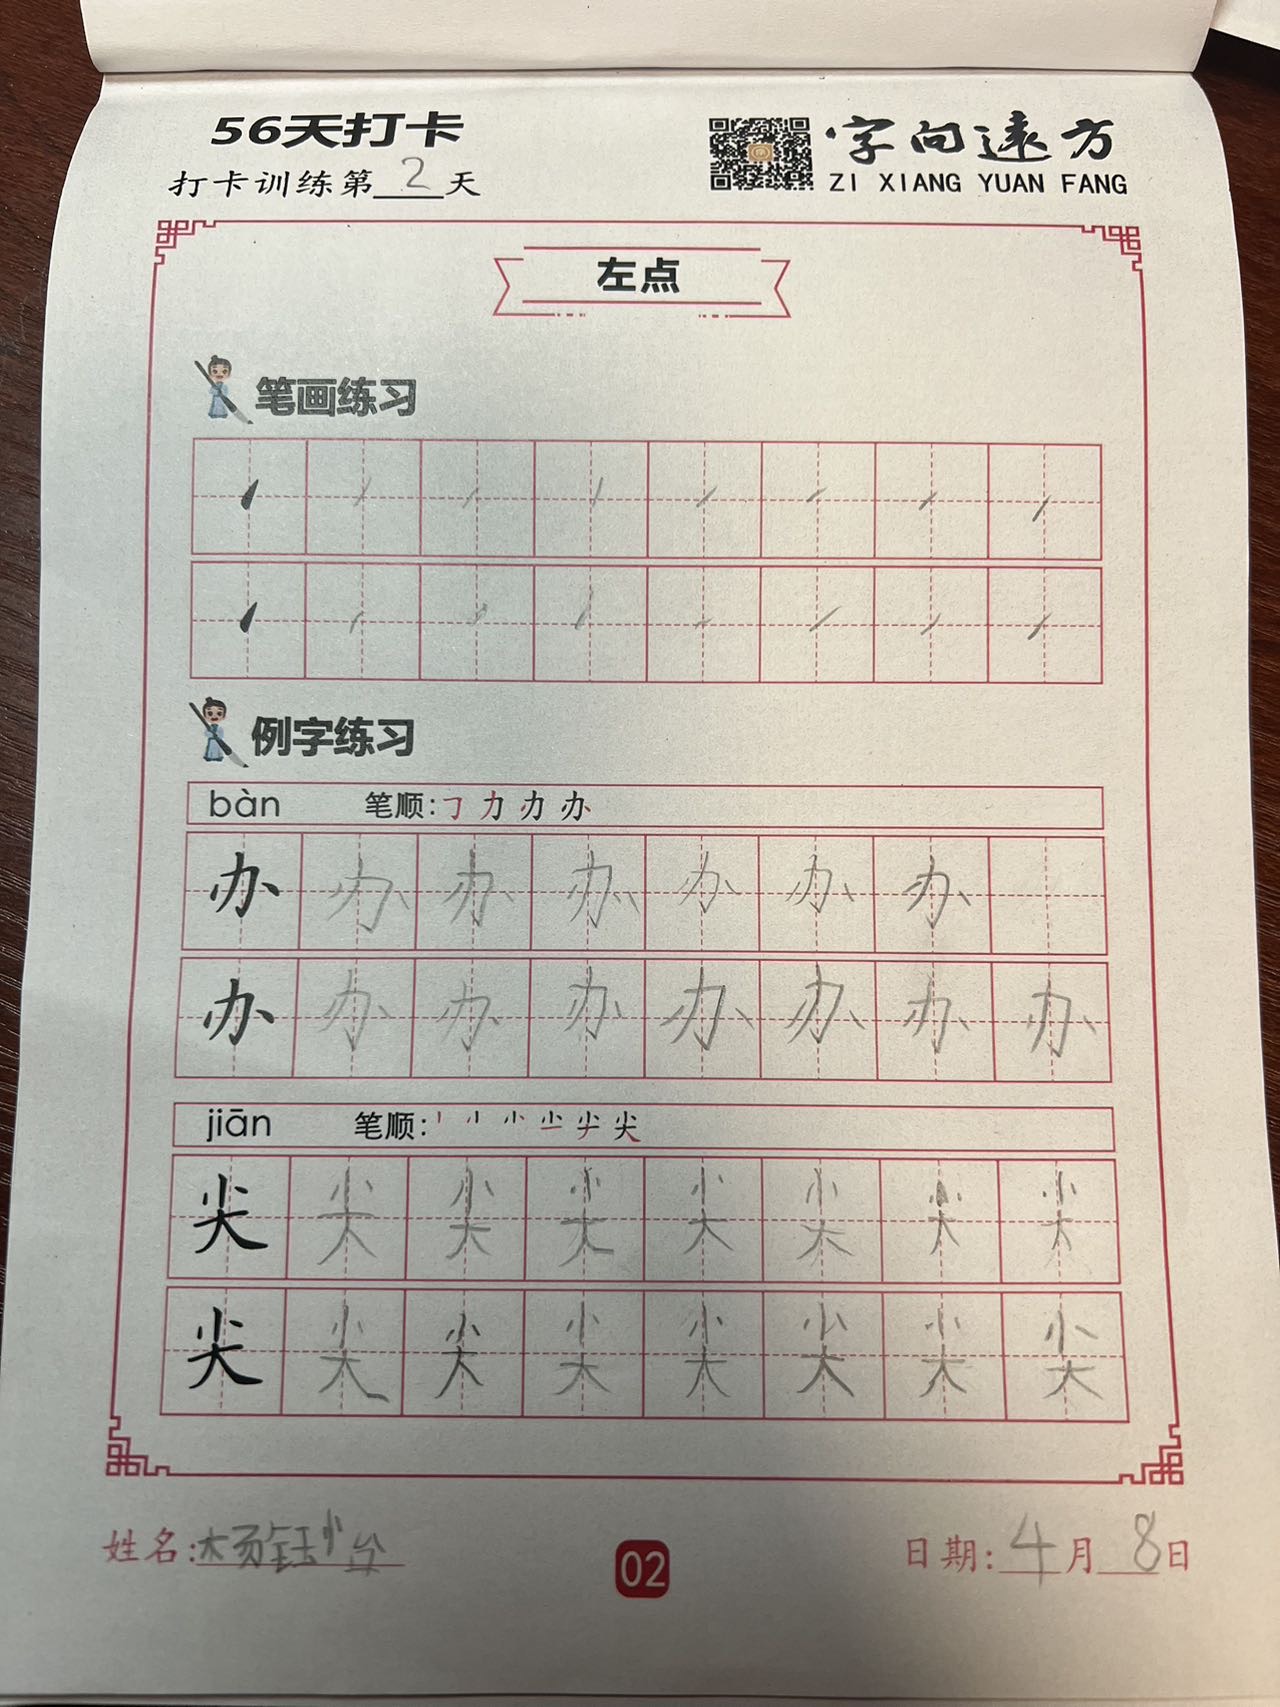 56天打卡
打卡训练第2天
字向远方
ZI XIANG YUAN FANG
左点
笔画练习
例字练习
bàn 笔顺:
办 办 办 办 办 办 办
办 办 办 办 办 办 办 办
jiān 笔顺:
尖 尖 尖 尖 尖 尖 尖 尖
尖 尖 尖 尖 尖 尖 尖 尖
姓名:杨钰
02
日期:4月8日